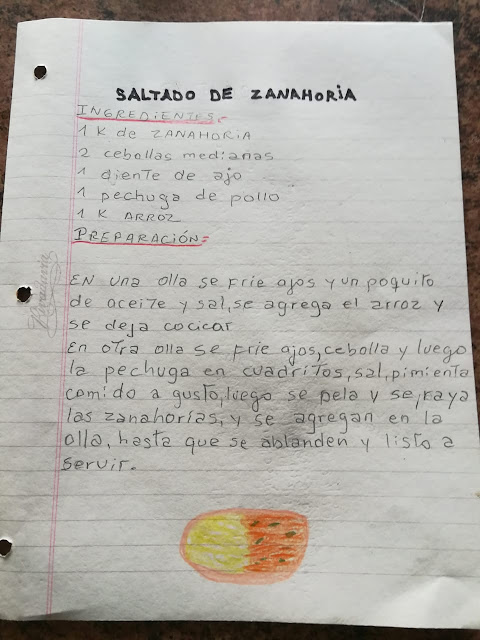 SALTADO DE ZANAHORIA
INGREDIENTES:
1 K de ZANAHORIA
2 cebollas medianas
1 diente de ajo
1 pechuga de pollo
1 K ARROZ
PREPARACIÓN:
EN una olla se frie ajos y un poquito
de aceite y sal, se agrega el arroz y
se deja cocicar
En otra olla se frie ajos, cebolla y luego
la pechuga en cuadritos, sal, pimienta
comido a gusto, luego se pela y se raya
las zanahorias, y se agregan en la
olla, hasta que se ablanden y listo a
servir.